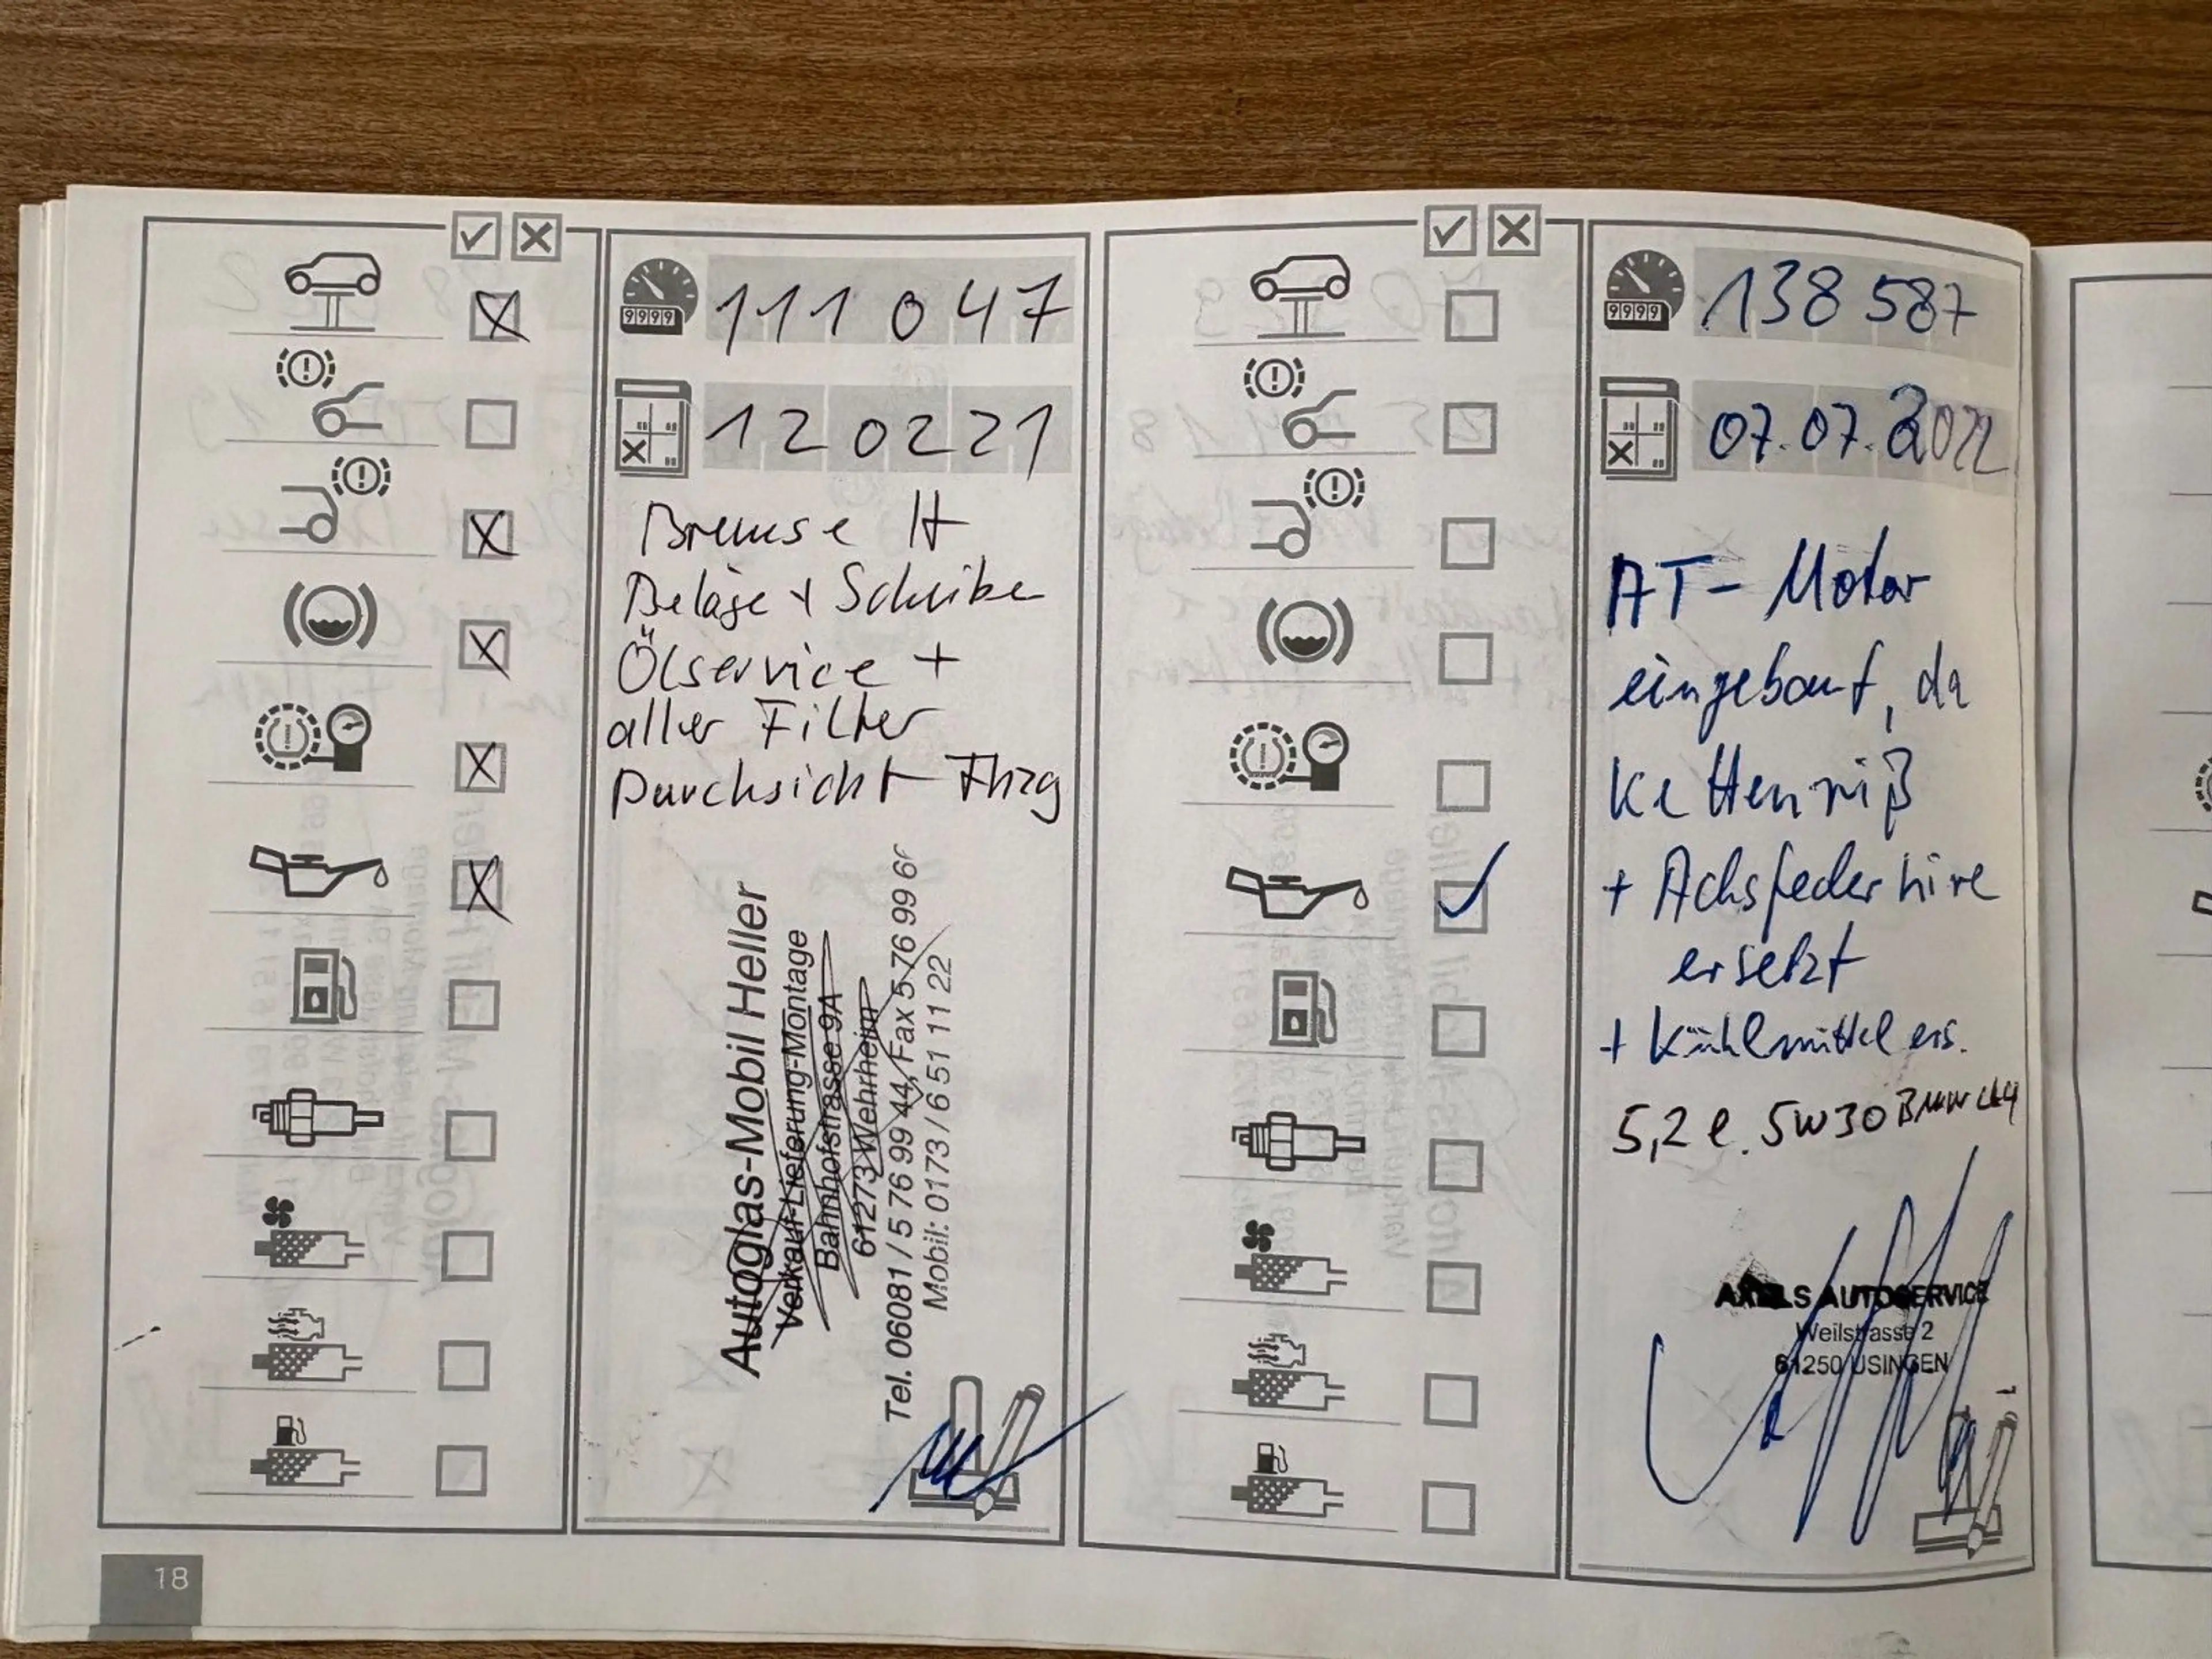 9999
111 047
120221
Bremse H
Beläge + Scheiben
Ölservice +
aller Filter
Durchsicht Fhzg
Autoglas-Mobil Heller
Verkauf-Lieferung-Montage
Bahnhofstrasse 9A
61273 Wehrheim
Tel. 06081 / 5 76 99 44, Fax 5 76 99 66
Mobil: 0173 / 6 51 11 22
18
9999
138 587
07.07.2022
AT-Motor
eingebaut, da
Kettenriß
+ Achsfeder hire
ersetzt
+ Kühlmittel ers.
5,2 l. 5W30 BMW LL4
AXELS AUTOSERVICE
Weilstrasse 2
61250 USINGEN